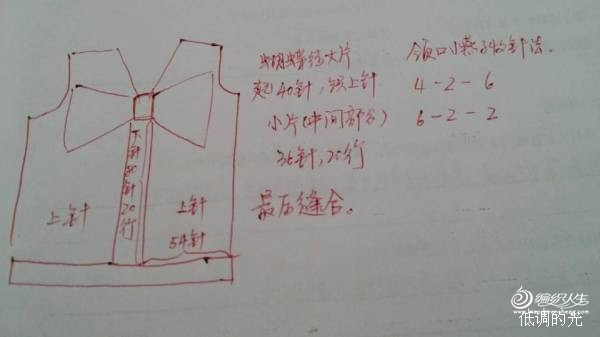 蝴蝶结大片
起40针,织上针
小片(中间部分)
36针,20行
最后缝合。
领口小燕子的针法。
4-2-6
6-2-2
下针80针20行
上针
上针
54针
编织人生
低调的光